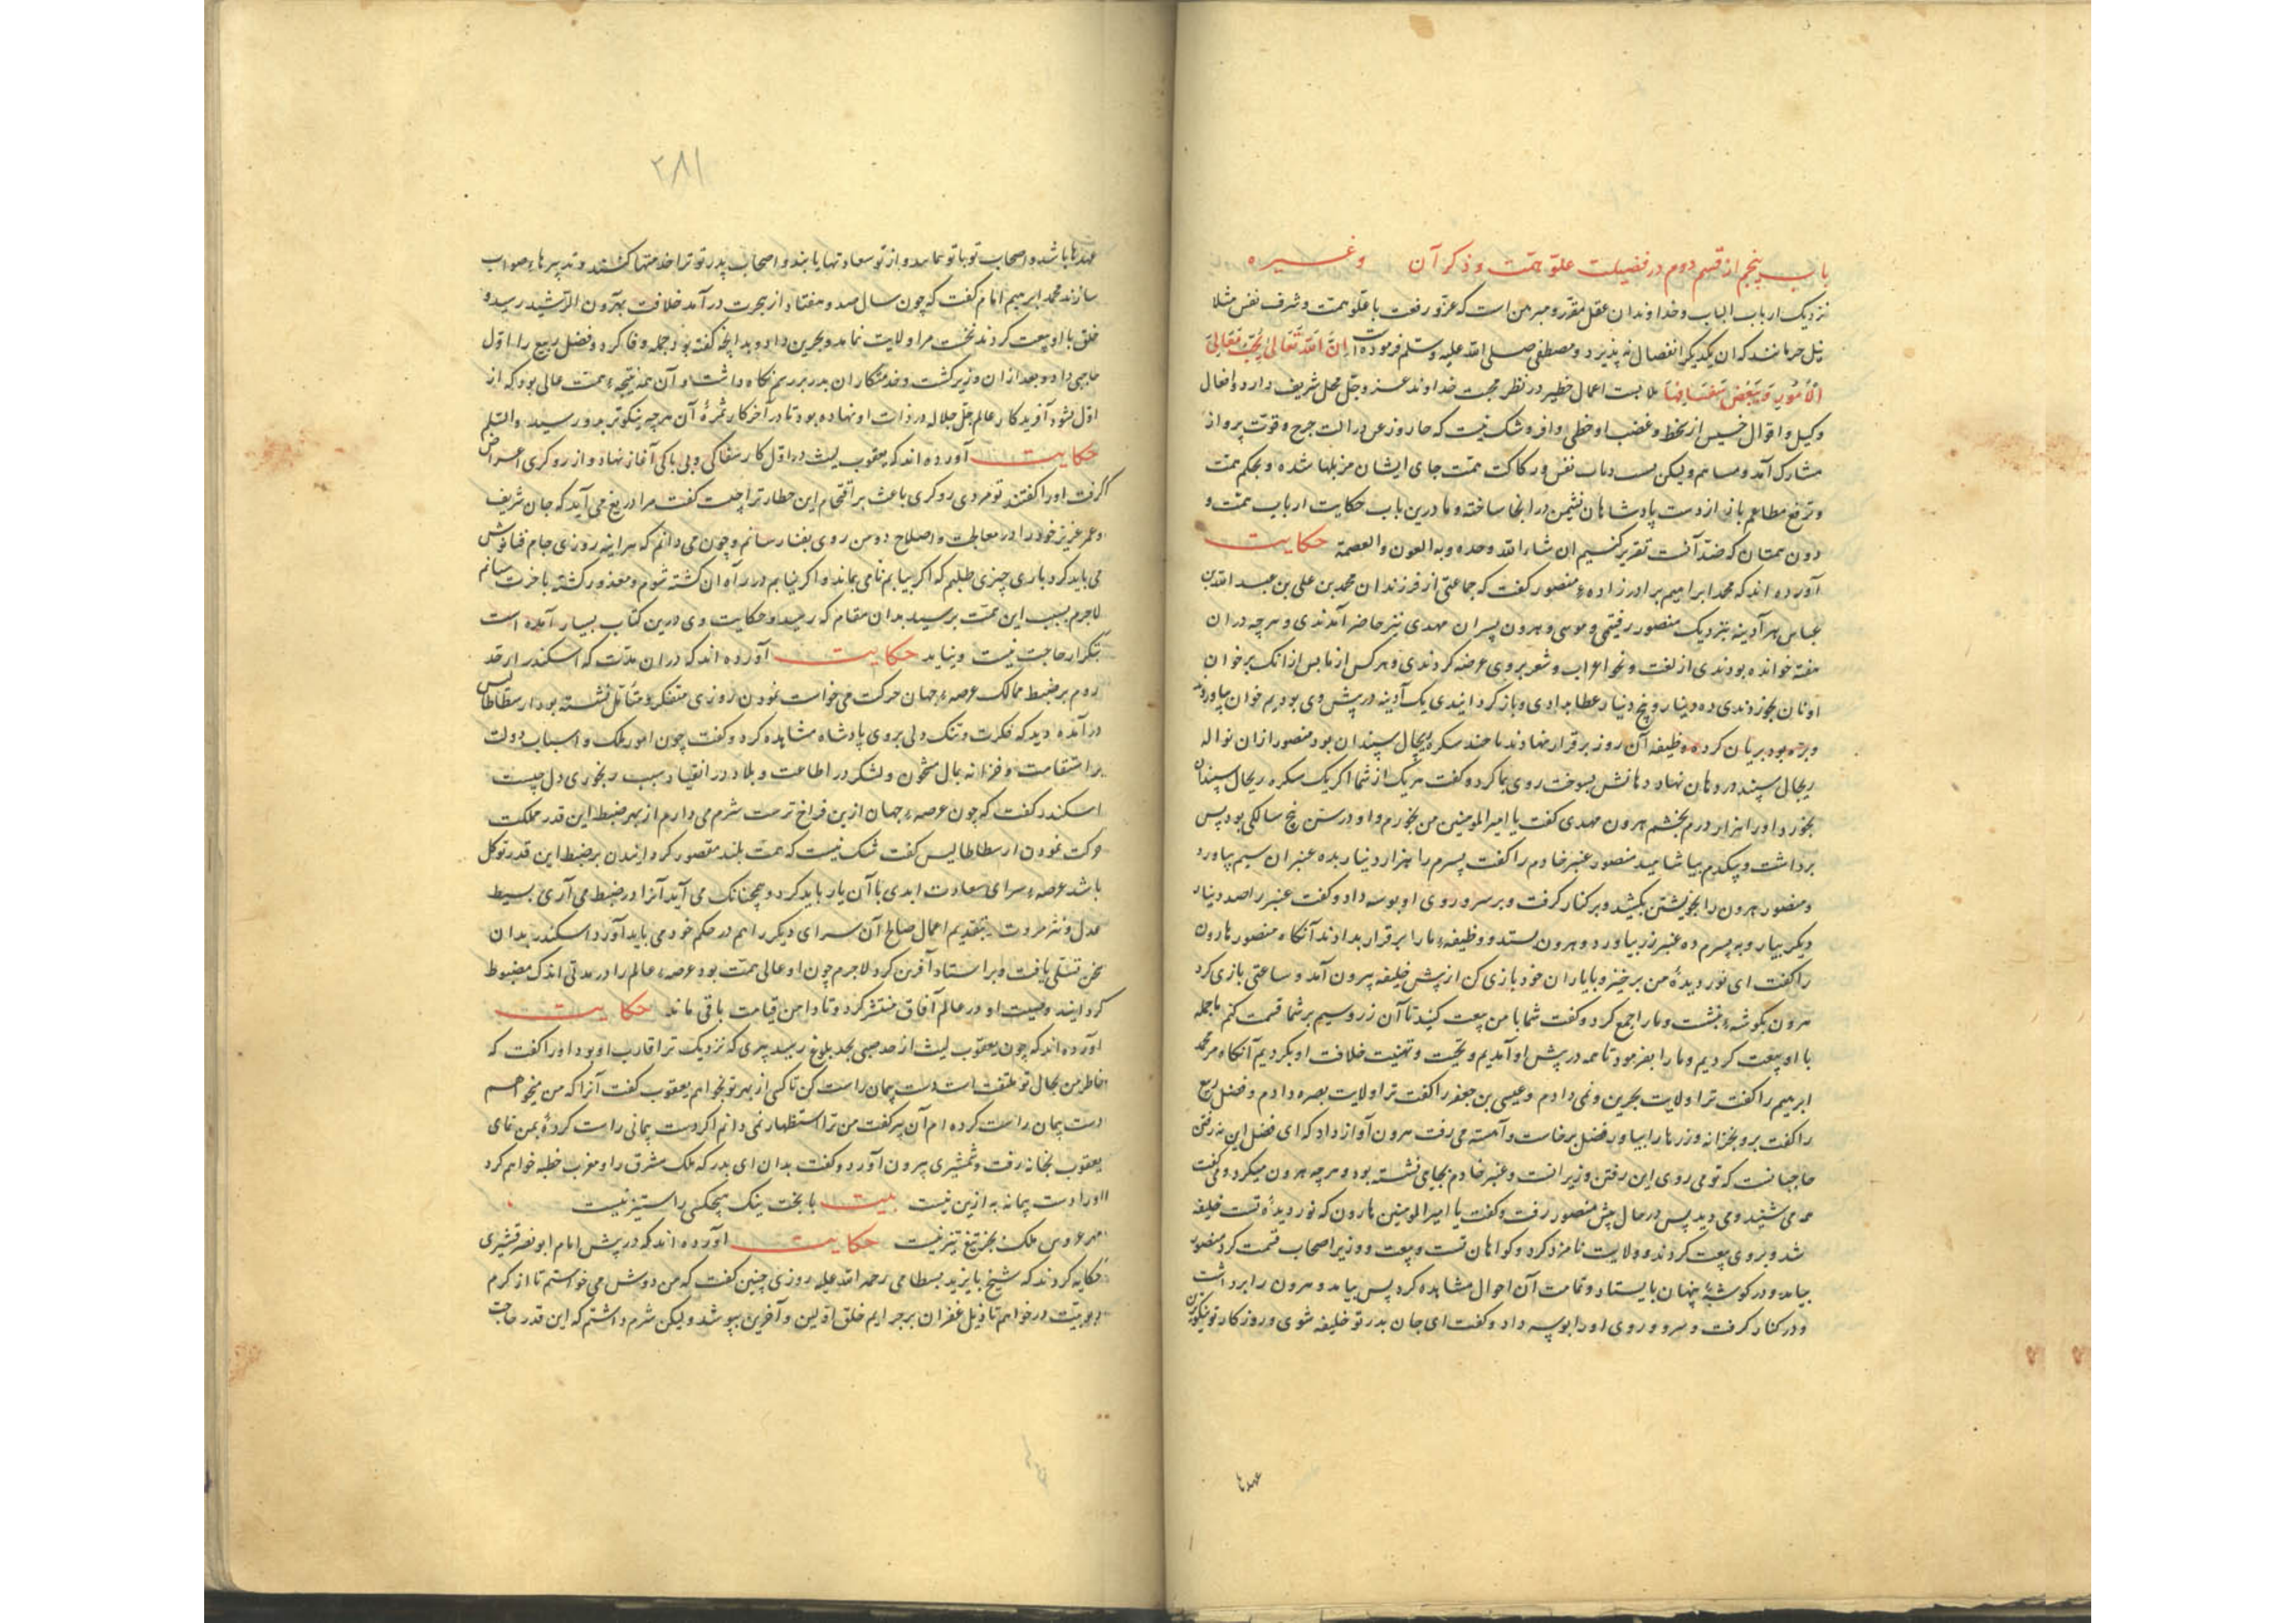 باب پنجم از قسم دوم در فضیلت علو همت و ذکر آن و غیره
نزدیک ارباب الباب و خداوندان عقل مقرر و مبرهن است که عز و رفعت با علو همت و شرف نفس مثلا
که از یکدیگر انفصال نه پذیرد و مصطفی صلی الله علیه و سلم فرموده است ان الله تعالی یحب معالی
الامور و یبغض سفسافها اعمال خطیر در نظر محبت خداوند عز و جل محل شریف دارد و افعال
و اقوال خسیس از سخط و غضب او و شک نیست که در الت جرح و قوت پرواز
مشارک آمد و ولیکن نفس و رکاکت همت جای ایشان مزبلها شده و بحکم همت
و ترفع مطاعم باز از دست پادشاهان نشیمن در انجا ساخته و ما درین باب حکایت ارباب همت و
دون همتان که ضد آنست تقریر کنیم ان شاء الله وحده و به العون و العصمة حکایت
آورده اند که محمد ابراهیم برادر زادهٔ منصور گفت که جماعتی از فرزندان محمد بن علی بن عبد الله بن
عباس هر آدینه بنزدیک منصور رفتمی و موسی و هرون پسران مهدی نیز حاضر آمدندی و هر چه دران
هفته خوانده بودندی از لغت و نحو و اعراب و شعر بر وی عرضه کردندی و هر کس از ما پس از انک بر خوان
او نان بخوردندی ده دینار و پنج دینار عطا بدادی و باز گردانیدی یک آدینه در پیش وی بودیم خوان بیاوردند
و بره بود بریان کرده وظیفه آن روز برقرار نهادند با چند سکره ریچال سپندان بود منصور ازان نواله
ریچال سپند در دهان نهاد دهانش بسوخت روی بما کرد و گفت هر یک از شما اگر یک سکره ریچال سپندان
بخورد او را هزار درم بخشم هرون مهدی گفت یا امیر المومنین من بخورم و او در سن پنج سالگی بود پس
برداشت و بیکدم بیاشامید منصور عنبر خادم را گفت پسرم را هزار دینار بده عنبر ان سیم بیاورد
و منصور هرون را بخویشتن بکشید و بر کنار گرفت و بر سر و روی او بوسه داد و گفت عنبر را صد دینار
دیگر بیار و به پسرم ده عنبر زر بیاورد و هرون بستد و وظیفهٔ ما را برقرار بدادند آنگاه منصور هارون
را گفت ای نور دیدهٔ من برخیز و با یاران خود بازی کن از پیش خلیفه بیرون آمد و ساعتی بازی کرد
هرون بگوشهٔ بنشست و ما را جمع کرد و گفت شما با من بیعت کنید تا آن زر و سیم بر شما قسمت کنم ما جمله
با او بیعت کردیم و ما را بفرمود تا همه در پیش او آمدیم و تحیت و تهنیت خلافت او بکردیم آنگاه مر محمد
ابرهیم را گفت ترا ولایت بحرین و نمی دادم و عیسی بن جعفر را گفت ترا ولایت بصره دادم و فضل ربیع
را گفت برو بخزانه و زرها را بیاور فضل برخاست و آهسته می رفت هرون آواز داد که ای فضل این نه رفتن
حاجبانست که تو می روی این رفتن وزیرانست و عنبر خادم بجایی نشسته بود و هر چه هرون میکرد و می گفت
همه می شنید و می دید پس در حال پیش منصور رفت و گفت یا امیر المومنین هارون که نور دیدهٔ تست خلیفه
شد و بر وی بیعت کردند و ولایت نامزد کرد و گواهان تست و بیعت و وزیر اصحاب قسمت کرد منصور
بیامد و در گوشهٔ پنهان بایستاد و تمامت آن احوال مشاهده کرد پس بیامد و هرون را برداشت
و در کنار گرفت و سر و روی او را بوسه داد و گفت ای جان پدر تو خلیفه شوی و روزگار تو نیکوترین
عهدها
۲۸۱
عهدها باشد و اصحاب تو با تو بمانند و از تو سعادتها یابند و اصحاب پدر تو ترا خدمتها کنند و تدبیرهاء صواب
سازند محمد ابرهیم امام گفت که چون سال صد و هفتاد از هجرت در آمد خلافت بهرون الرشید رسید و
خلق با او بیعت کردند نخست مرا ولایت نماند و بحرین داد و بدانچه گفته بود جمله وفا کرد و فضل ربیع را اول
حاجبی داد و بعد ازان وزیر گشت و خدمتکاران پدر بر رسم نگاه داشت و آن همه نتیجهٔ همت عالی بود که از
اول نشو آفریدگار عالم جل جلاله در ذات او نهاده بود تا در آخر کار ثمرهٔ آن هر چه نیکوتر بدو رسید والسلم
حکایت آورده اند که یعقوب لیث در اول کار سفاکی و بی باکی آغاز نهاد و از روگری اعراض
گرفت او را گفتند تو مردی روگری باعث بر اقتحام این خطار ترا چیست گفت مرا دریغ می آید که جان شریف
و عمر عزیز خود را در معالجت و اصلاح دو من روی بفنا رسانم و چون می دانم که هر اینه روزی جام فنا نوش
می باید کرد باری چیزی طلبم که اگر بیابم نامی بماند و اگر نیابم در راه آن کشته شوم و معذور گشته باخرت رسانم
لاجرم بسبب این همت برسید بدان مقام که رسید و حکایت وی درین کتاب بسیار آمده است
بتکرار حاجت نیست و بیاید حکایت آورده اند که دران مدت که اسکندر از حد
روم بر ضبط ممالک عرصهٔ جهان حرکت می خواست نمودن روزی متفکر و متأمل نشسته بود ارسطاطالیس
درآمده دید که فکرت و تنگ دلی بر روی پادشاه مشاهده کرد و گفت چون امور ملک و اسباب دولت
بر استقامت و خزانه بمال مشحون و لشکر در اطاعت و بلاد در انقیاد سبب رنجوری دل چیست
اسکندر گفت که چون عرصهٔ جهان ازین فراخ ترست شرم می دارم از بهر ضبط این قدر مملکت
حرکت نمودن ارسطاطالیس گفت شک نیست که همت بلند مقصور گردانیدن بر ضبط این قدر توکل
باشد عرصهٔ سرای سعادت ابدی با آن یار باید کرد و همچنانک می آید آنرا در ضبط می آری بسیط
عدل و نشر مروت بتقدیم اعمال صالح آن سرای دیگر را هم در حکم خود می باید آورد اسکندر بدان
سخن تسلی یافت و بر استاد آفرین کرد لاجرم چون او عالی همت بود عرصهٔ عالم را در مدتی اندک مضبوط
گردانید و صیت او در عالم آفاق منتشر کرد و تا دامن قیامت باقی ماند حکایت
آورده اند که چون یعقوب لیث از حد صبی بحد بلوغ رسید پیری که نزدیک تر اقارب او بود او را گفت که
خاطر من بحال تو ملتفت است دست پیمان راست کن تا کسی از بهر تو بخواهم یعقوب گفت آنرا که من میخواهم
دست پیمان راست کرده ام آن پیر گفت من ترا استظهار نمی دانم اگر دست پیمانی راست کردهٔ بمن نمای
یعقوب بخانه رفت و شمشیری بیرون آورد و گفت بدان ای پدر که ملک مشرق را و مغرب خطبه خواهم کرد
او را دست پیمانه به ازین نیست بیت با بخت نیک هیچکس را ستیز نیست
مهر عروس ملک بجز تیغ تیز نیست حکایت آورده اند که در پیش امام ابو نصر قشیری
حکایه کردند که شیخ بایزید بسطامی رحمه الله علیه روزی چنین گفت که من دوش می خواستم تا از کرم
ربوبیت درخواهم تا ذیل غفران بر جرایم خلق اولین و آخرین بپوشد ولیکن شرم داشتم که این قدر حاجت